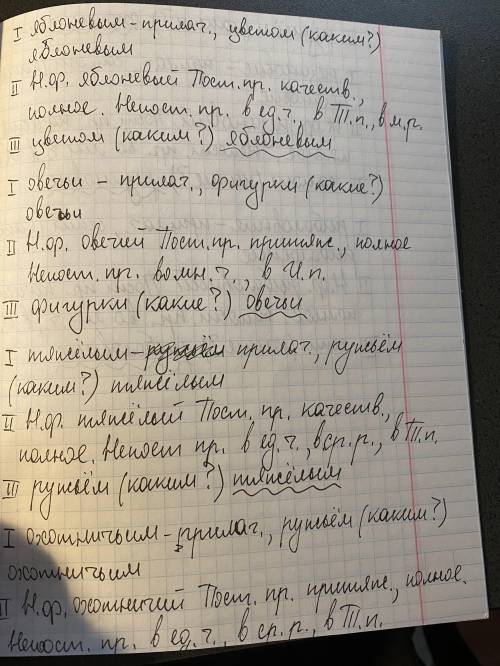 I яблоневым - прилаг., цветом (каким?)
яблоневым
II Н.ф. яблоневый Пост. пр. качеств.,
полное. Непост. пр. в ед.ч., в Т.п., в м.р.
III цветом (каким?) яблоневым
I овечьи - прилаг., фигурки (какие?)
овечьи
II Н.ф. овечий Пост. пр. притяж., полное
Непост. пр. во мн. ч., в И.п.
III фигурки (какие?) овечьи
I тяжёлым - прилаг., ружьём
(каким?) тяжёлым
II Н.ф. тяжёлый Пост. пр. качеств.,
полное. Непост пр. в ед.ч., в ср.р., в Т.п.
III ружьём (каким?) тяжёлым
I охотничьим - прилаг., ружьём (каким?)
охотничьим
II Н.ф. охотничий Пост. пр. притяж., полное.
Непост. пр. в ед.ч., в ср.р., в Т.п.